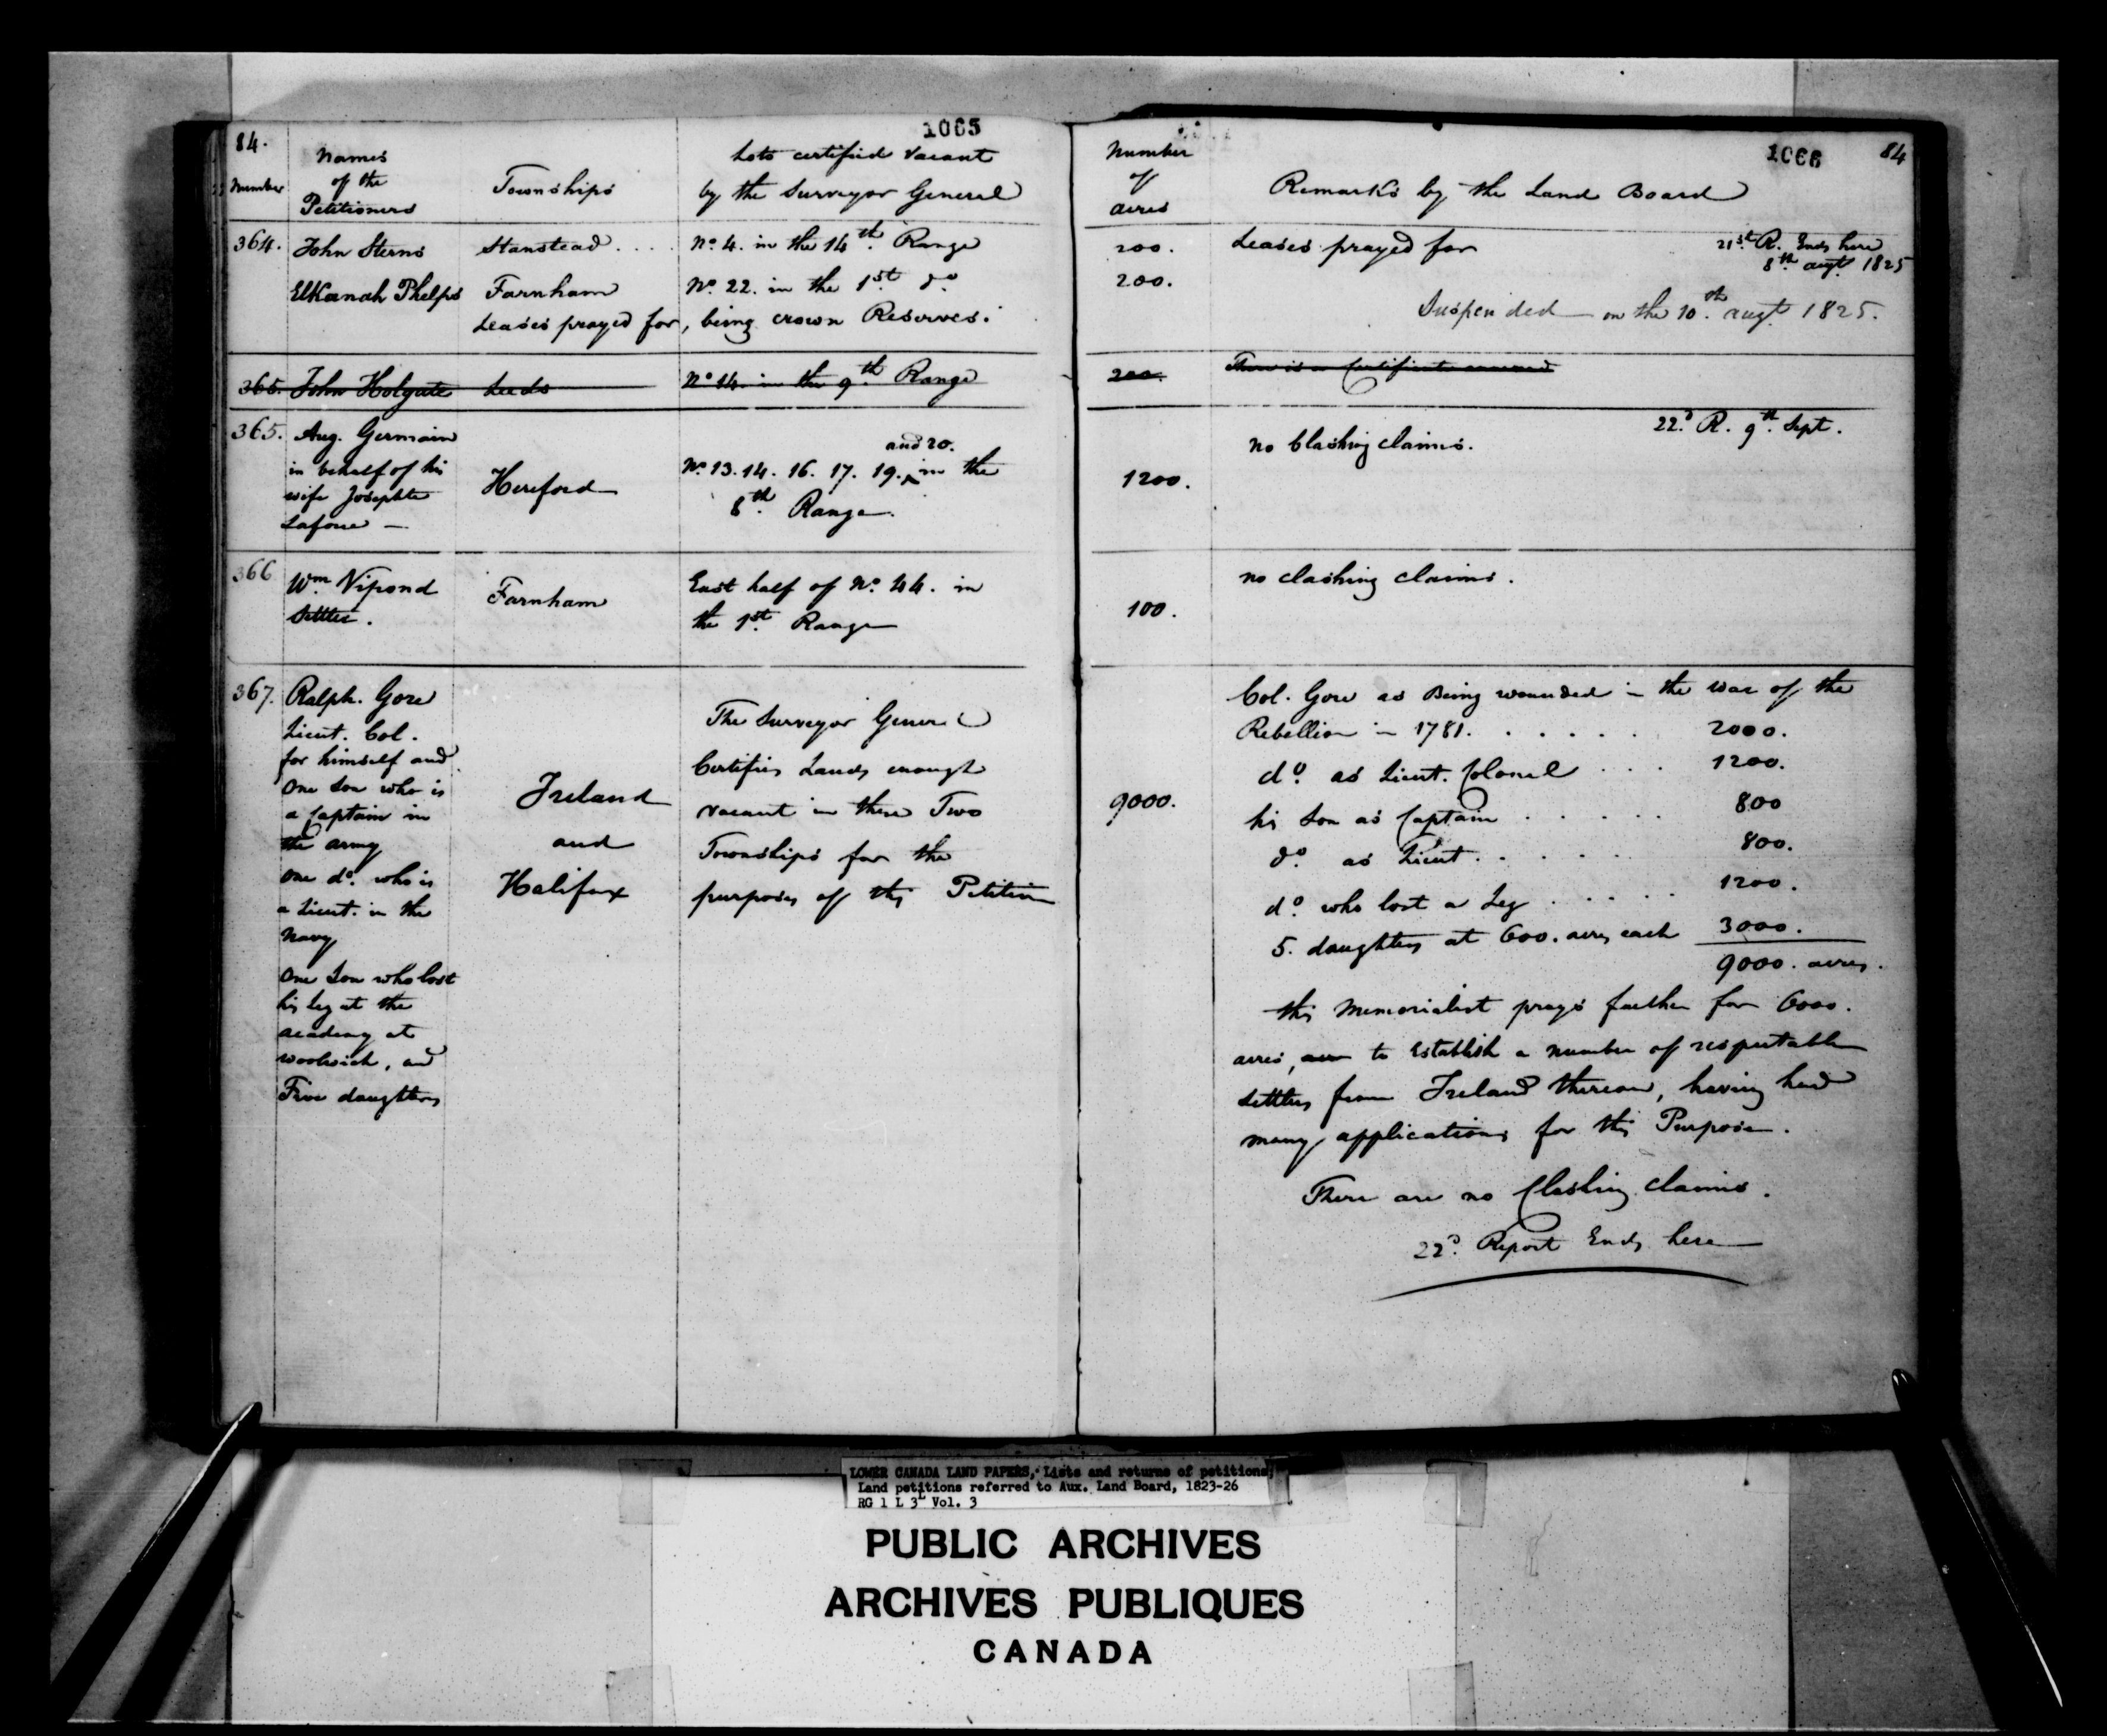 84.
1065
Number
Names
of the
Petitioners
Townships
Lots certified vacant
by the Surveyor General
364. John Sterns Stanstead . . . . No. 4. in the 14th. Range
Elkanah Phelps Farnham No. 22. in the 1st. do.
Leases prayed for, being crown Reserves.
365. John Holgate Leeds No 14 in the 9th. Range
365. Aug. Germain
in behalf of his
wife Josephte
Hereford
and 20.
No. 13. 14. 16. 17. 19. ‸ in the
8th. Range.
366 Wm. Vipond
Settler.
Farnham
East half of No. 44. in
the 1st. Range
367. Ralph. Gore
Lieut. Col.
for himself and
One Son who is
a Captain in
the army
One do. who is
a Lieut. in the
Navy
One Son who lost
his leg at the
academy at
woolwich, and
Five daughters
Ireland
and
Halifax
The Surveyor General
Certifies Lands enough
vacant in these Two
Townships for the
purposes of this Petition
1066
84
Number
of
acres
Remarks by the Land Board
200. Leases prayed for
21st. R. Ends here
8th augt. 1825
200.
Suspended on the 10th. augt. 1825.
200. There is a Certificate annexed
22d. R. 9th. Sept.
no Clashing claims.
1200.
no clashing claims.
100.
Col. Gore as Being wounded in the War of the
Rebellion in 1781. . . . . . . 2000.
do. as Lieut. Colonel . . . 1200.
9000.
his Son as Captain . . . . . 800
do. as Lieut. . . . . 800.
do. who lost a Leg . . . . . 1200.
5. daughters at 600. acres each 3000.
9000. acres.
this Memorialist prays further for 6000.
acres, to Establish a number of respectable
Settlers from Ireland thereon, having had
many applications for this Purpose.
There are no Clashing claims.
22d. Report Ends here
LOWER CANADA LAND PAPERS, Lists and returns of petitions;
Land petitions referred to Aux. Land Board, 1823-26
RG 1 L 3L Vol. 3
PUBLIC ARCHIVES
ARCHIVES PUBLIQUES
CANADA